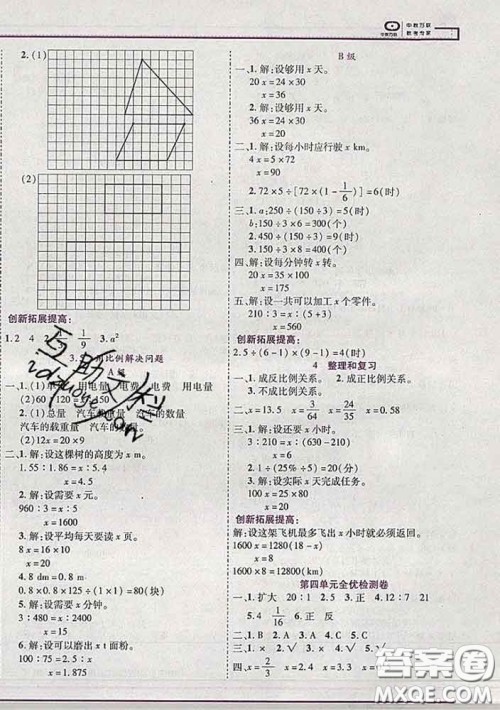 2.(1)
(2)
创新拓展提高:
1.2 4 1/3 1/9 3.a²
比例解决问题
A 级
用电量 电费 用电量
(2)60
2.(1)总量 汽车载重量 汽车的数量
汽车的载重量 汽车的数量
(2)12x=20×9
二、1.解:设这棵树的高度为 x m。
1.55∶1.86=x∶5.4
x=4.5
2.解:设需要 x 元。
960∶3=x∶5
x=1600
3.解:设平均每天要读 x 页。
8x=16×10
x=20
4.8 dm=0.8 m
0.8×0.8×125÷(1×1)=80(块)
5.解:设需要 x 分钟。
3∶480=x∶9600
x=60
6.解:设可以磨出 x t 面粉。
100∶75=2.5∶x
x=1.875
中教互联
教考专家
B 级
一、1.解:设够用 x 天。
20x=24×30
x=36
2.解:设够用 x 天。
36x=24×30
x=20
二、1.解:设每小时应行驶 x km。
4x=5×72
x=90
2.72×5÷[72×(1-1/6)]=6(时)
三、1.a:250÷(150÷3)=5(时)
b:150÷3×6=300(个)
2.450÷(150÷3)=9(时)
3.150÷3×9=450(个)
四、解:设每分钟转 x 转。
x=210
五、解:设一共可以加工 x 个零件。
x=210
创新拓展提高:
2.5÷(6-1)×(9-1)=4(分)
4 整理和复习
一、1.成反比例关系。 2.成正比例关系。
3.不成比例关系。
二、x=13.5 x= x=0.6 x=
三、1.解:设还要 x 小时。
3∶210=x∶(630-210)
x=6
2.1÷(25%÷5)=20(天)
3.解:设实际 x 天完成任务。
x=20
创新拓展提高:
解:设这架飞机最多飞出 x 小时就必须返回。
1600x=1280(18-x)
x=8
第四单元全优检测卷
一、1.扩大 20∶1 2.5 3.正 4.12∶7 21
5.4 6.正
二、1.B 2.A 3.C 4.C 5.C
三、1.√ 2.√ 3.× 4.√ 5.×
四、x=2/3 x=2.4 x=3.3
互助文栏
答案圈
MXQE.COM